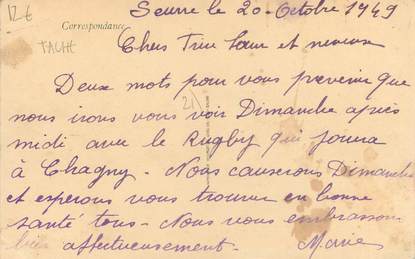 12 €
TACHE
Correspondance
Seurre le 20 Octobre 1949
Chers
Soeur et neveux
Deux mots pour vous prevenir que
nous irons vous voir Dimanche après
midi avec le Rugby qui jouera
à Chagny - Nous causerons Dimanche
et esperons vous trouver en bonne
santé tous - Nous vous embrassons
bien affectueusement - Marie
21